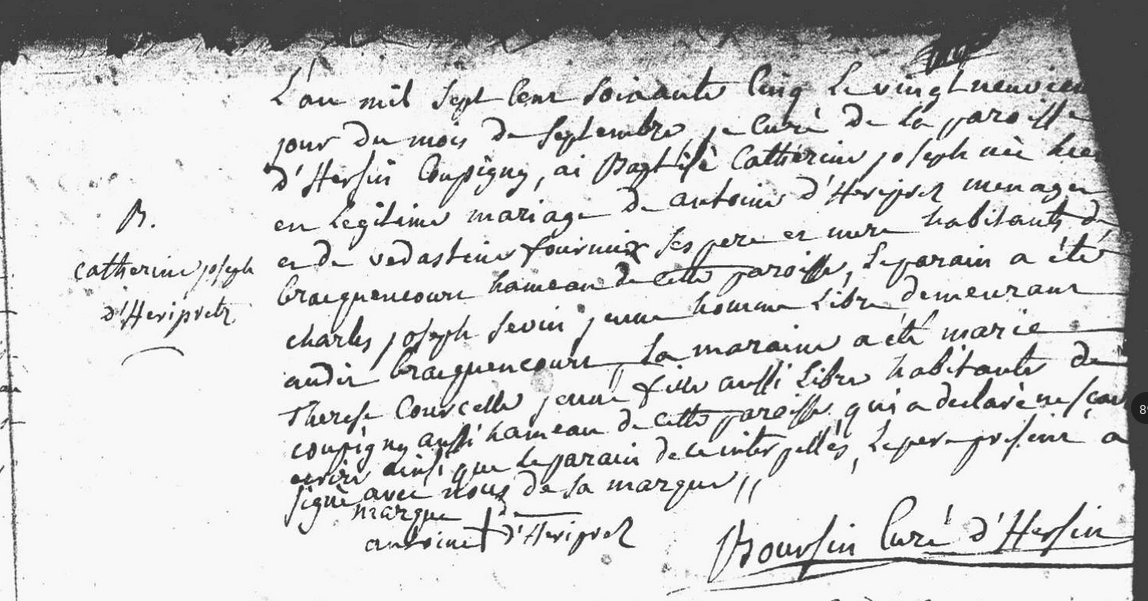 B.
catherine joseph
d'Heripretz
L'an mil sept cent soixante cinq le vingt neuviem
jour du mois de septembre je curé de la paroisse
d'Hersin Coupigny, ai Baptisé Catherine joseph née hier
en legitime mariage de antoine d'Heripret menager
et de vedastine fournier ses pere et mere habitants de
bracquencourt hameau de cette paroisse, le parain a été
charles joseph sevin jeune homme libre demeurant
audit bracquencourt, la maraine a été marie
Therese Courcelle jeune fille aussi libre habitante de
coupigny aussi hameau de cette paroisse qui a declaré ne sçav
ecrire ainsi que le parain de ce interpellés, le pere present a
signé avec nous de sa marque //
marque de
antoine d'Heripret
Boursin Curé d'Hersin